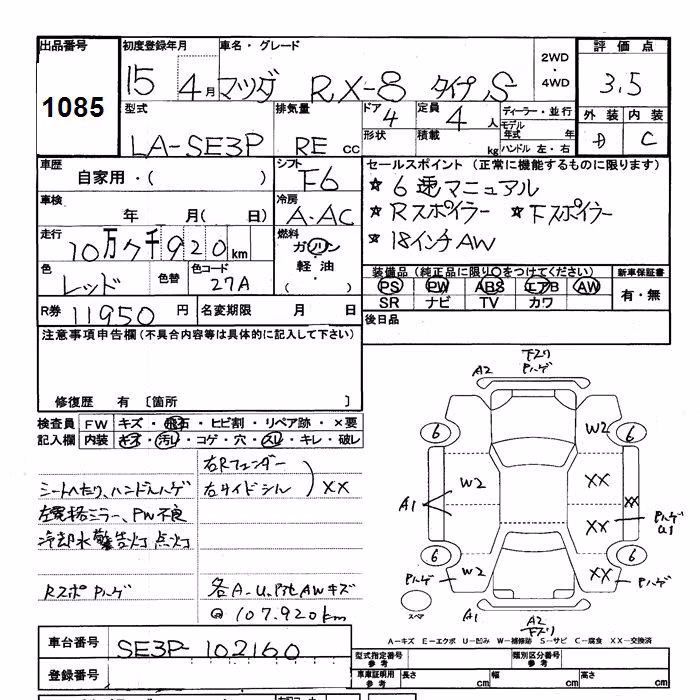 出品番号 初度登録年月 車名・グレード 2WD・4WD 評価点
1085 15 4月 マツダ RX-8 タイプS 3.5
型式 排気量 ドア 4 定員 4人 ディーラー・並行 外装 内装
LA-SE3P RE cc 形状 積載 kg モデル年式 年 ハンドル 左・右 C
車歴 シフト セールスポイント (正常に機能するものに限ります)
自家用・( ) F6 ☆ 6速マニュアル
車検 冷房 ☆ Rスポイラー ☆ Fスポイラー
年 月( 日) A.AC ☆ 18インチAW
走行 燃料
10万7千920km ガソリン・軽油・( )
色 色替 色コード 装備品 (純正品に限り〇をつけてください) 新車保証書
レッド 27A PS PW ABS エアB AW 有・無
SR ナビ TV カワ
R券 11950円 名変期限 月 日 後日品
注意事項申告欄(不具合内容等は具体的に記入して下さい)
修復歴 有 [箇所 ]
検査員 FW キズ・飛石・ヒビ割・リペア跡・×要
記入欄 内装 キズ・汚レ・コゲ・穴・スレ・キレ・破レ
右Rフェンダー
シートへたり、ハンドルハゲ 右サイドシル ) XX
左電格ミラー、PW不良
冷却水警告灯 点灯
Rスポ Pハゲ 各A-U、Pit AWキズ
@107.920km
A2 下スリ Pハゲ
6 W2 6
W2 XX
A1 XX
XX Pハゲ U1
6 6
Pハゲ W2 XX Pハゲ
スペア A1 A2 下スリ
A-キズ E-エクボ U-凹み W-補修跡 S-サビ C-腐食 XX-交換済
車台番号 SE3P-102160 型式指定番号 参考 類別区分番号 参考
登録番号 車庫証明用 参考 長さ cm 幅 cm 高さ cm